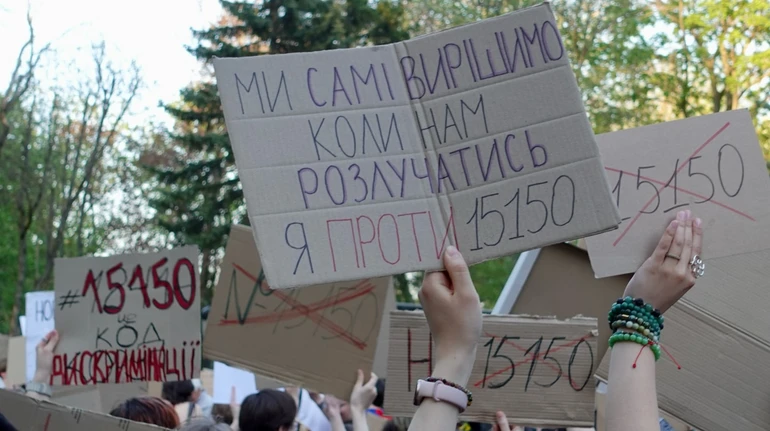 МИ САМІ ВИРІШИМО
КОЛИ НАМ
РОЗЛУЧАТИСЬ
Я ПРОТИ 15150
15150
#15150
це
КОД
ДИСКРИМІНАЦІЇ
№15150
15150